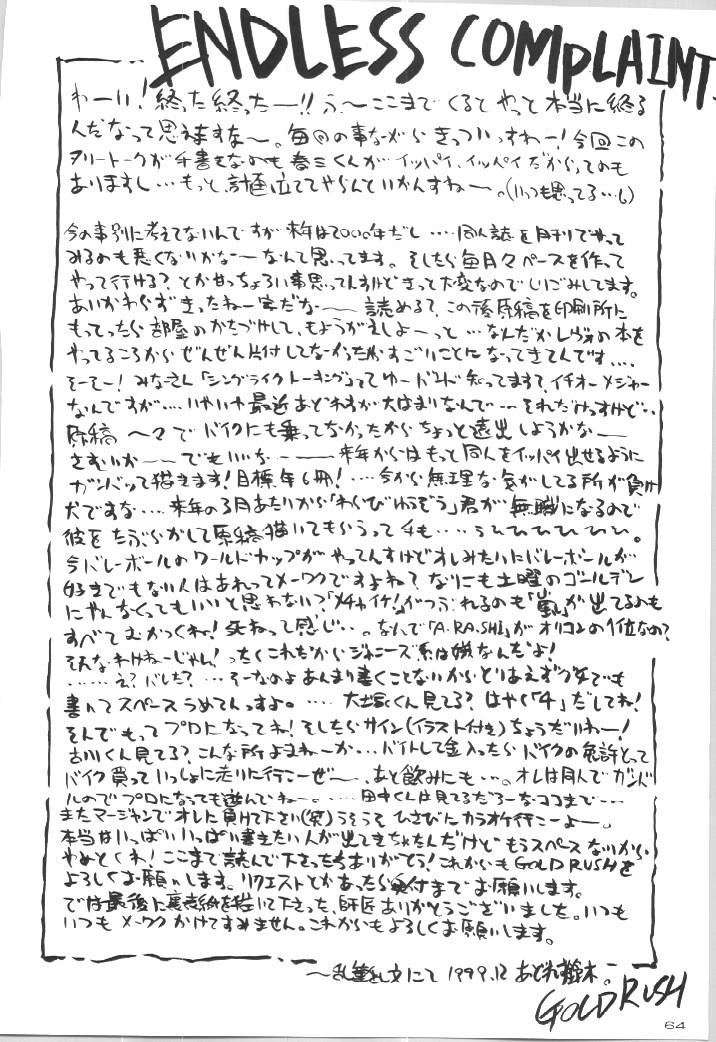 ENDLESS COMPLAINT
わーい!終った終ったー!!う〜ここまでくるとやっと本当に終る
んだなって思いますな〜。毎回の事ながらきっついっすわー!今回この
フリートークが手書きなのも春三くんがイッパイ、イッパイだからってのも
ありますし…もっと計画立ててやらんといかんすねー。(いつも思ってる…(。)
今の事別に考えてないんですが来年は2000年だし‥‥同人誌を月刊でやって
みるのも悪くないかなーなんて思ってます。そしたら毎月々ペースを作って
やって行ける?とか甘っちょろい事思ってんすけどきって大変なのでしりごみしてます。
あいかわらずきったねー字だなー 読める?この後原稿を印刷所に
もってったら部屋のかたづけして、もようがえしよーっと…なんだかレヴォの本を
やってるころからぜんぜん片付してなかったからすごいことになってきてんです‥‥
そーそー!みなさん「シングライクトーキング」ってゆーバンド知ってます?イチオーメジャー
なんですが‥‥いやいや最近あどれすが大はまりなんで…それだけっすけど‥
原稿 〜々でバイクにも乗ってなかったからちょっと遠出しようかなー
さむいかーーでもいいなーー来年からはもっと同人をイッパイ出せるように
ガンバッて描きます!目標年6冊!‥‥今から無理な気がしてる所が負け
犬ですな‥‥来年の3月あたりから「わらびゆうぞう」君が無職になるので
彼をたぶらかして原稿描いてもらうって手も‥‥うひひひひひひ。
今バレーボールのワールドカップがやってんすけどオレみたいにバレーボールが
好きでもない人はあれってメーワクですよね?なにも土曜のゴールデン
にやんなくってもいいと思わない?「メチャイケ!」がつぶれるのも「嵐」が出てるのも
すべてむかつくね!死ねって感じ‥。なんで「A.RA.SHI」がオリコンの1位なの?
そんなわけねーじゃん!ったくこれだからジャニーズ系は嫌なんだよ!
‥‥‥え?バレた?…そーなのよあんまり書くことないからとりあえず字でも
書いてスペースうめてんっすよ。‥‥大塚くん見てる?はやく「4」だしてね!
そんでもってプロになってね!そしたらサイン(イラスト付き)ちょうだいねー!
古川くん見てる?こんな所よまねーか…バイトして金入ったらバイクの免許とって
バイク買っていっしょに走りに行こーぜー、あと飲みにも…。オレは同人でガンバ
ルのでプロになっても遊んでねー。‥‥田中くんは見てるだろーなココまで…
またマージャンでオレに負けて下さい(笑)うそうそひさびにカラオケ行こーよー。
本当はいっぱいいっぱい書きたい人が出てきちゃたんだけどもうスペースないから
やめとくね!ここまで読んで下さった方ありがとう!これからもGOLD RUSHを
よろしくお願いします。リクエストとかあったら受付までお願いします。
では最後に裏表紙を描いて下さった、師匠ありがとうございました。いつも
いつもメーワクかけてすみません。これからもよろしくお願いします。
〜乱筆乱文にて 1999.12 あどれす鈴木。
GOLD RUSH
64